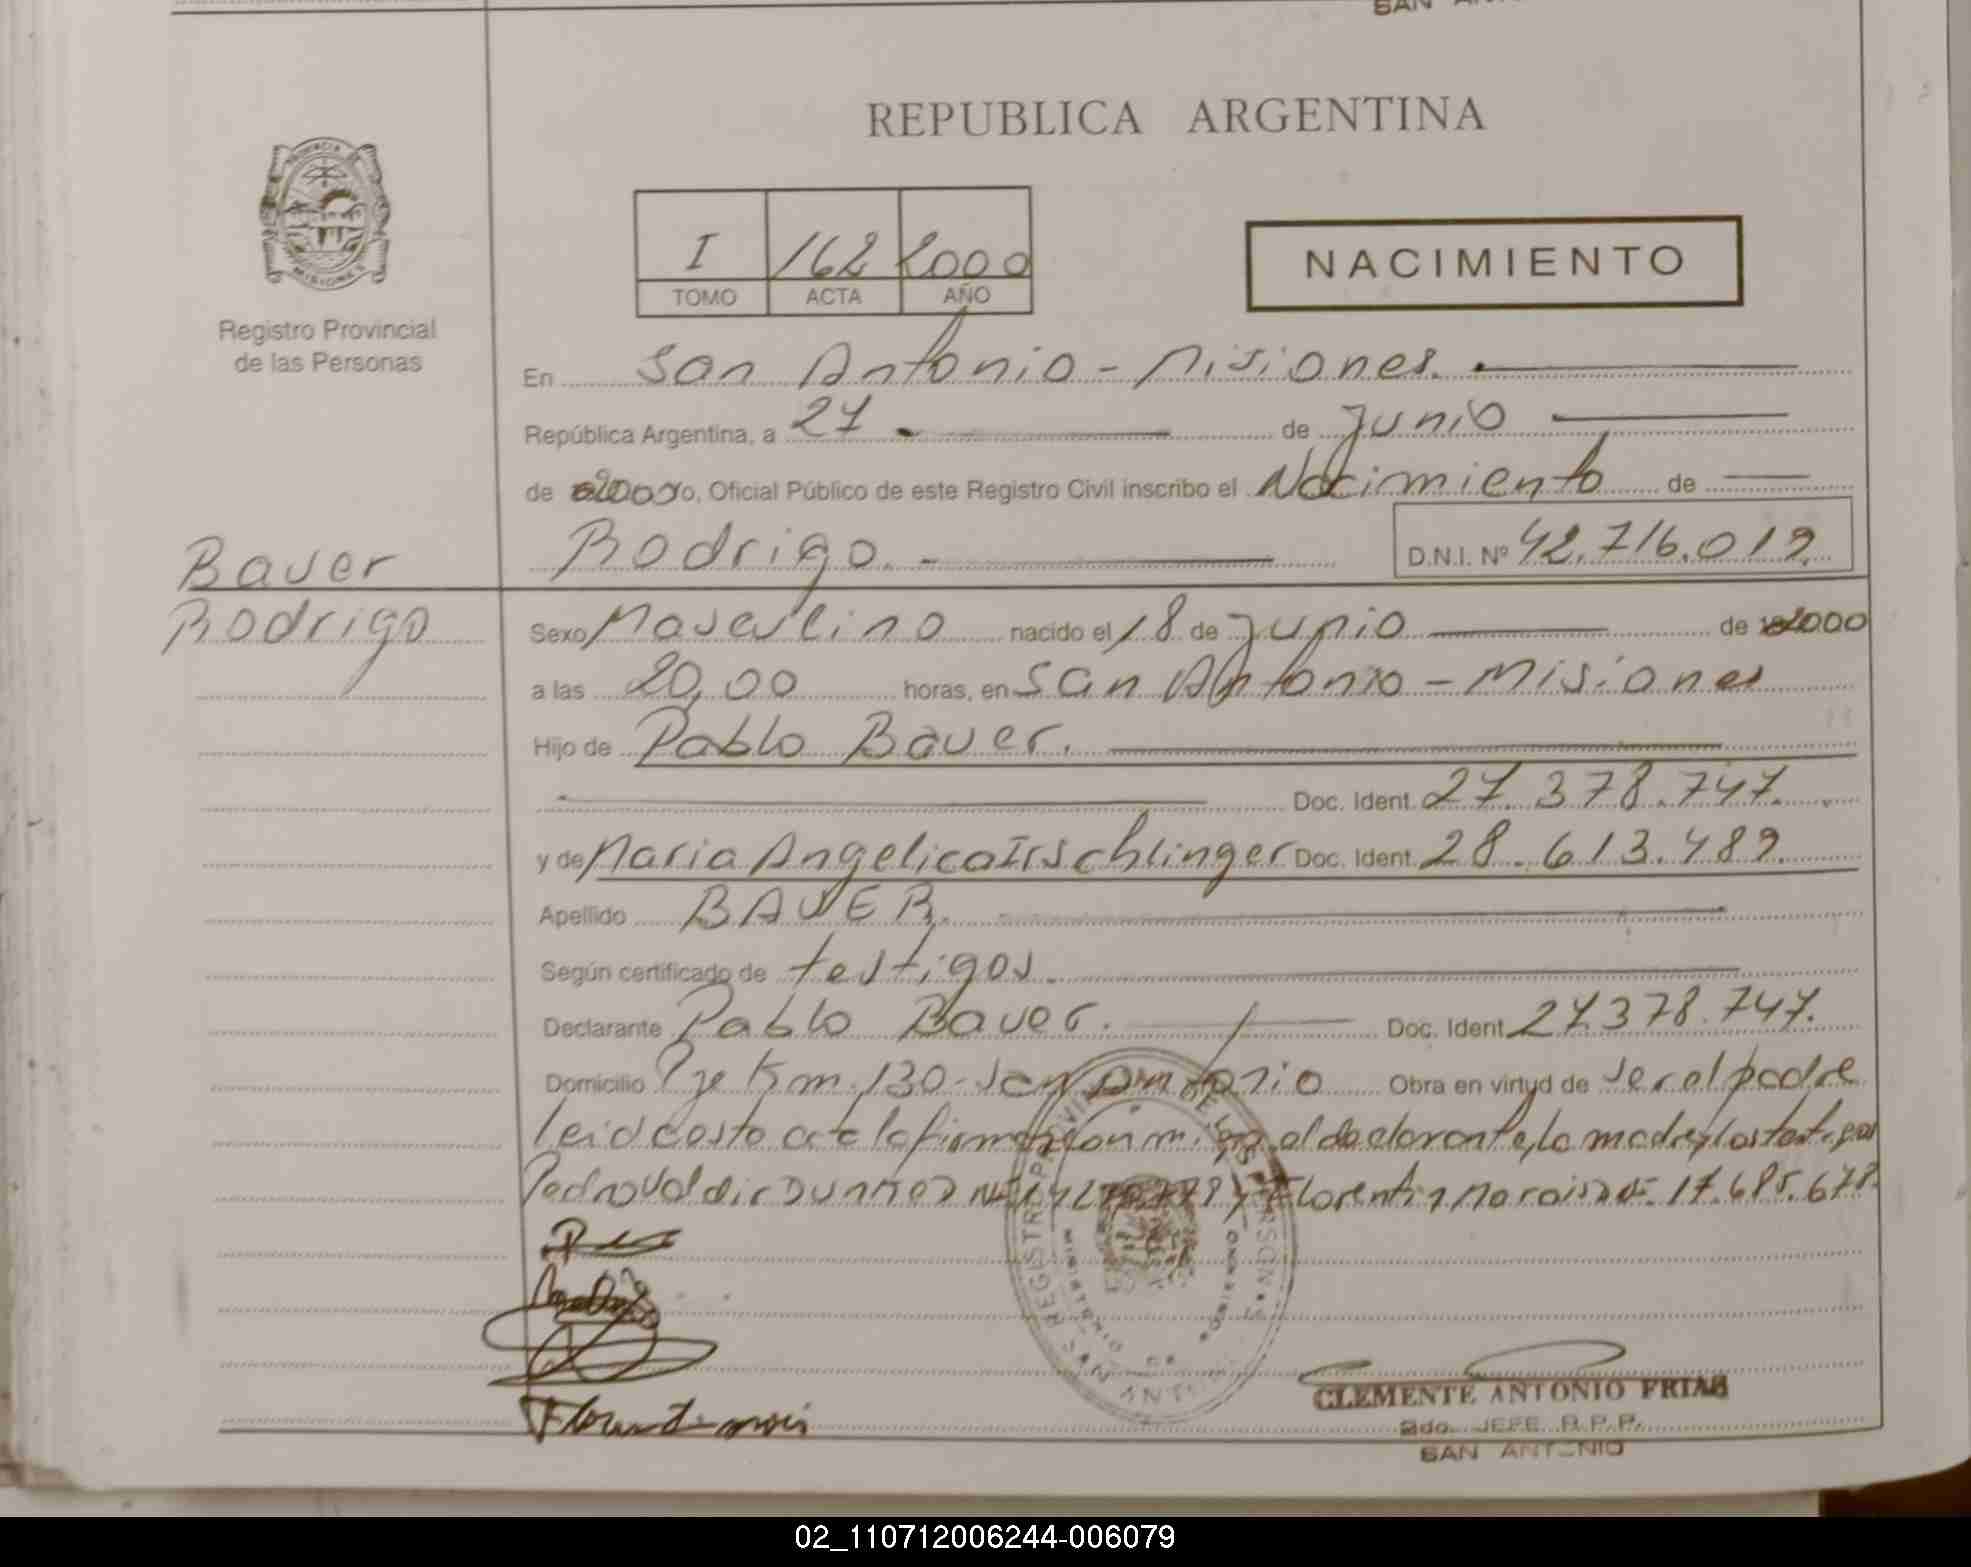 SAN
REPUBLICA ARGENTINA
PROVINCIA DE
MISIONES
Registro Provincial
de las Personas
I 162 2000
TOMO ACTA AÑO
NACIMIENTO
En San Antonio - Misiones.
República Argentina, a 27 de Junio
de 2000 yo, Oficial Público de este Registro Civil inscribo el Nacimiento de
Rodrigo. D.N.I. Nº 42.716.019.
Bauer
Rodrigo
Sexo Masculino nacido el 18 de Junio de 2000
a las 20,00 horas, en San Antonio - Misiones
Hijo de Pablo Bauer.
Doc. Ident. 27.378.747.
y de Maria Angelica Irschlinger Doc. Ident. 28.613.489.
Apellido BAUER.
Según certificado de testigos.
Declarante Pablo Bauer. Doc. Ident. 27.378.747.
Domicilio Pje Km. 130 - San Antonio Obra en virtud de ser el padre
leida esta acta la firman con migo el declarante, la madre y los testigos
Pedro Valdir y Florentin Morais 17.685.678.
CLEMENTE ANTONIO FRIAS
2do. JEFE R.P.P.
SAN ANTONIO
02_110712006244-006079